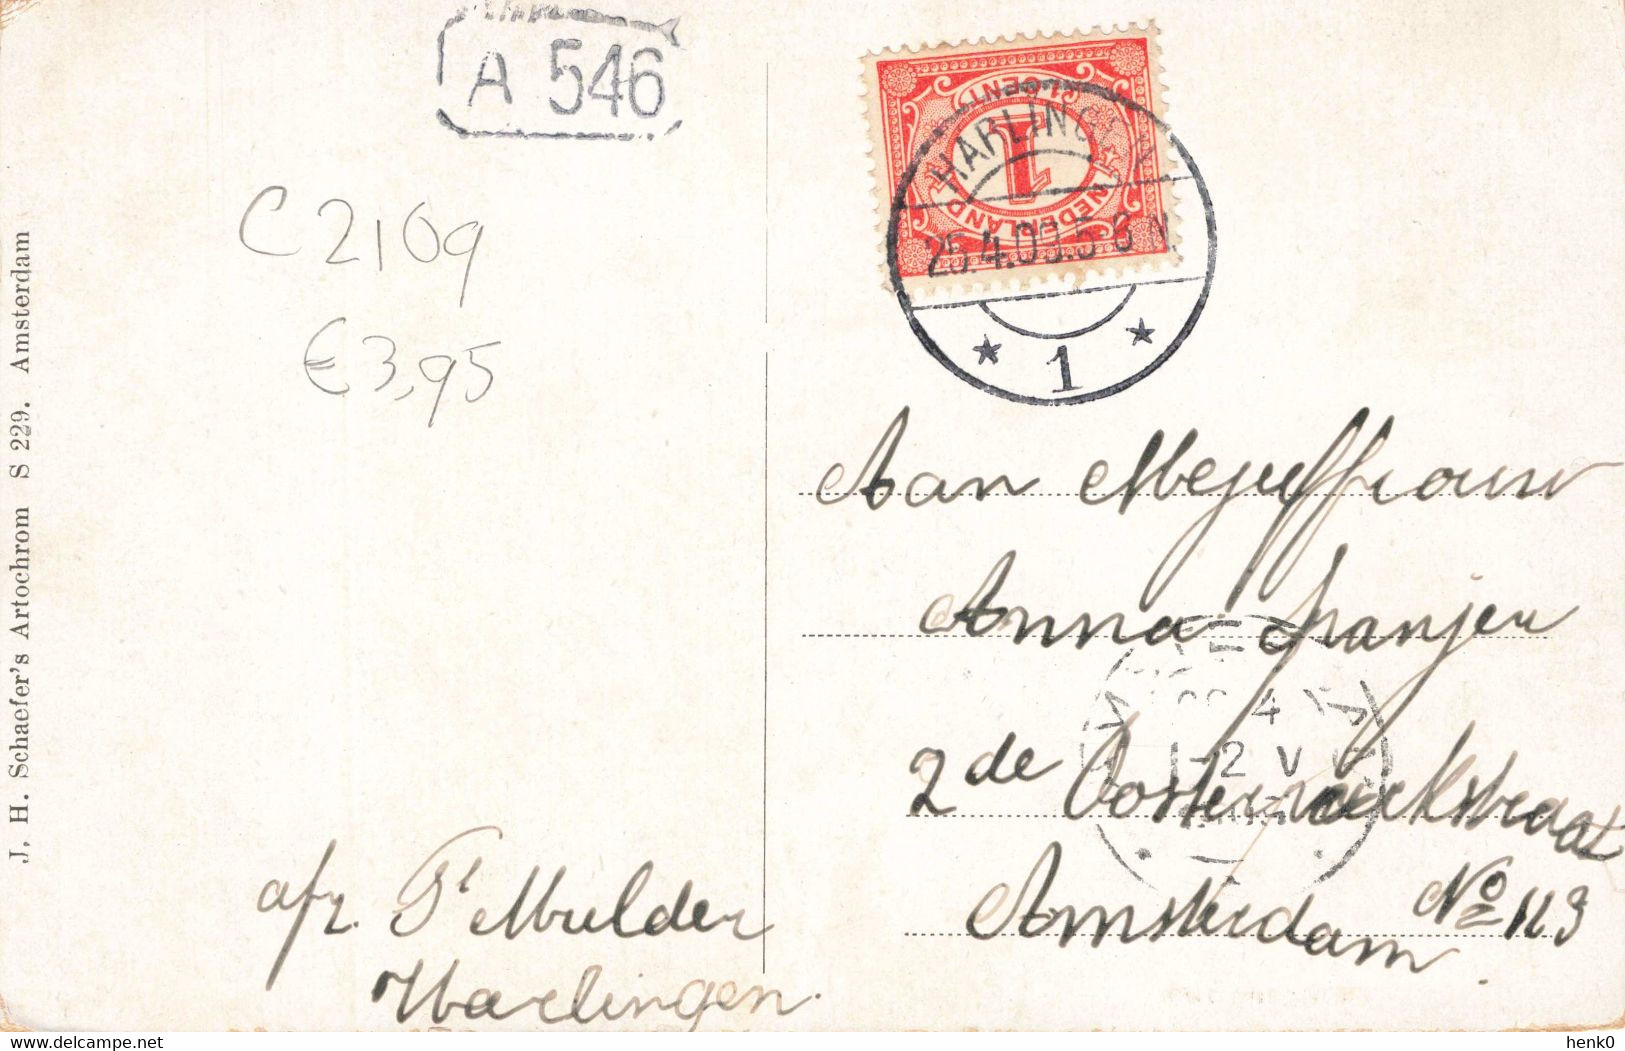 A 546
C 2109
€ 3,95
J. H. Schaefer's Artochrom S 229. Amsterdam
1 CENT
1
NEDERLAND
HARLING
25.4.09.5-6 N.
1
Aan Mejuffrouw
Anna Spanjer
2de Oosterparkstraat
Amsterdam No 113
4
1-2 V
afz. Ts Mulder
Harlingen.
www.delcampe.net
henk0